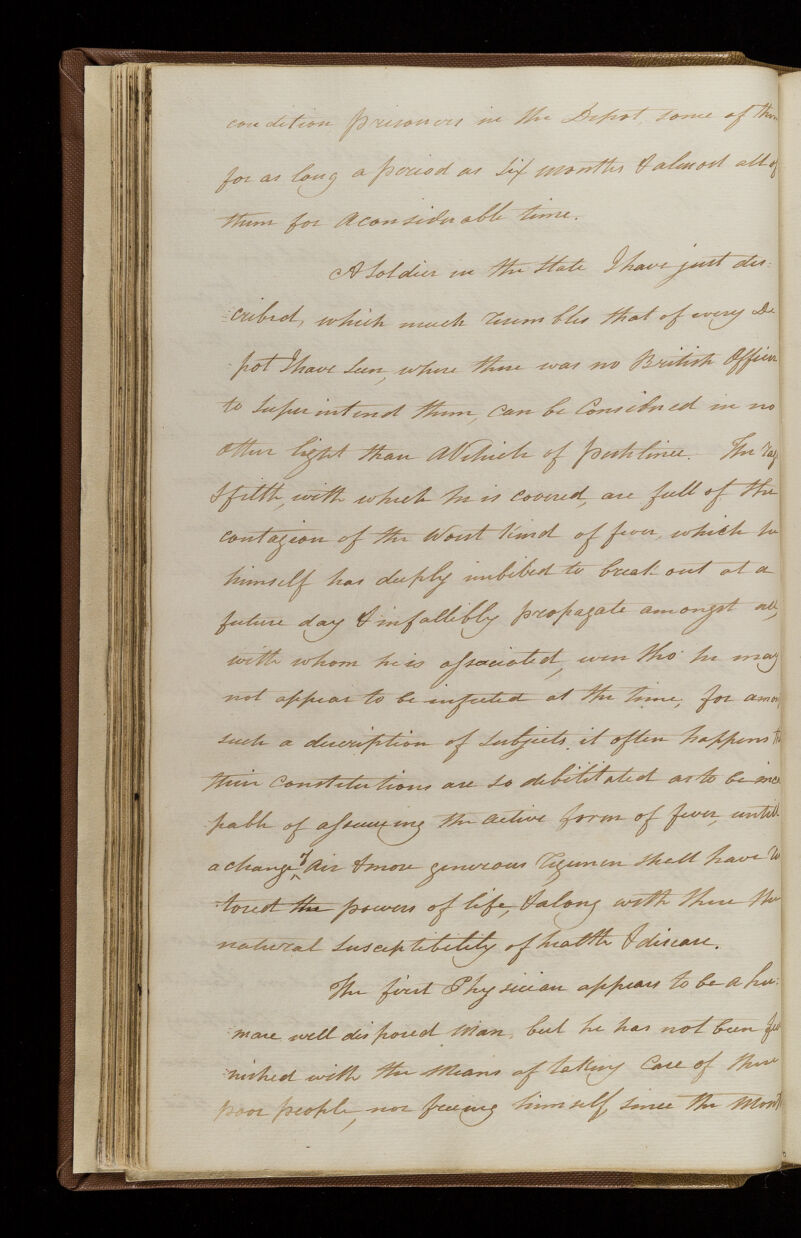 condition prisoners in the Depot, some of them
for as long a period as six months & almost all of
them for a considerable time.
A Soldier in the state I have just des:
:cribed, which much resembles that of every De
:pot I have seen, where there was no British Officer
to superintend them, can be Considered in no
other light than a Vehicle of pestilence. The rags
& filth, with which he is covered, are full of the
contagion of the worst kind of fever, which he
himself has deeply imbibed to break out at a
future day & infallibly propagate amongst all,
with whom he is associated, even tho' he may
not appear to be infected at the time, for among
such a description of subjects, it often happens
their constitutions are so debilitated as to be inca
pable of assuming the active form of fever, untill
a change of Air & more generous regimen shall have re
:tored the powers of life, & along with these the
natural susceptibility of health & disease.
The first Physician appears to be a hu:
:mane well disposed Man, but he has not been fur
:nished with the Means of taking Care of these
poor people, nor freeing himself, since the Month